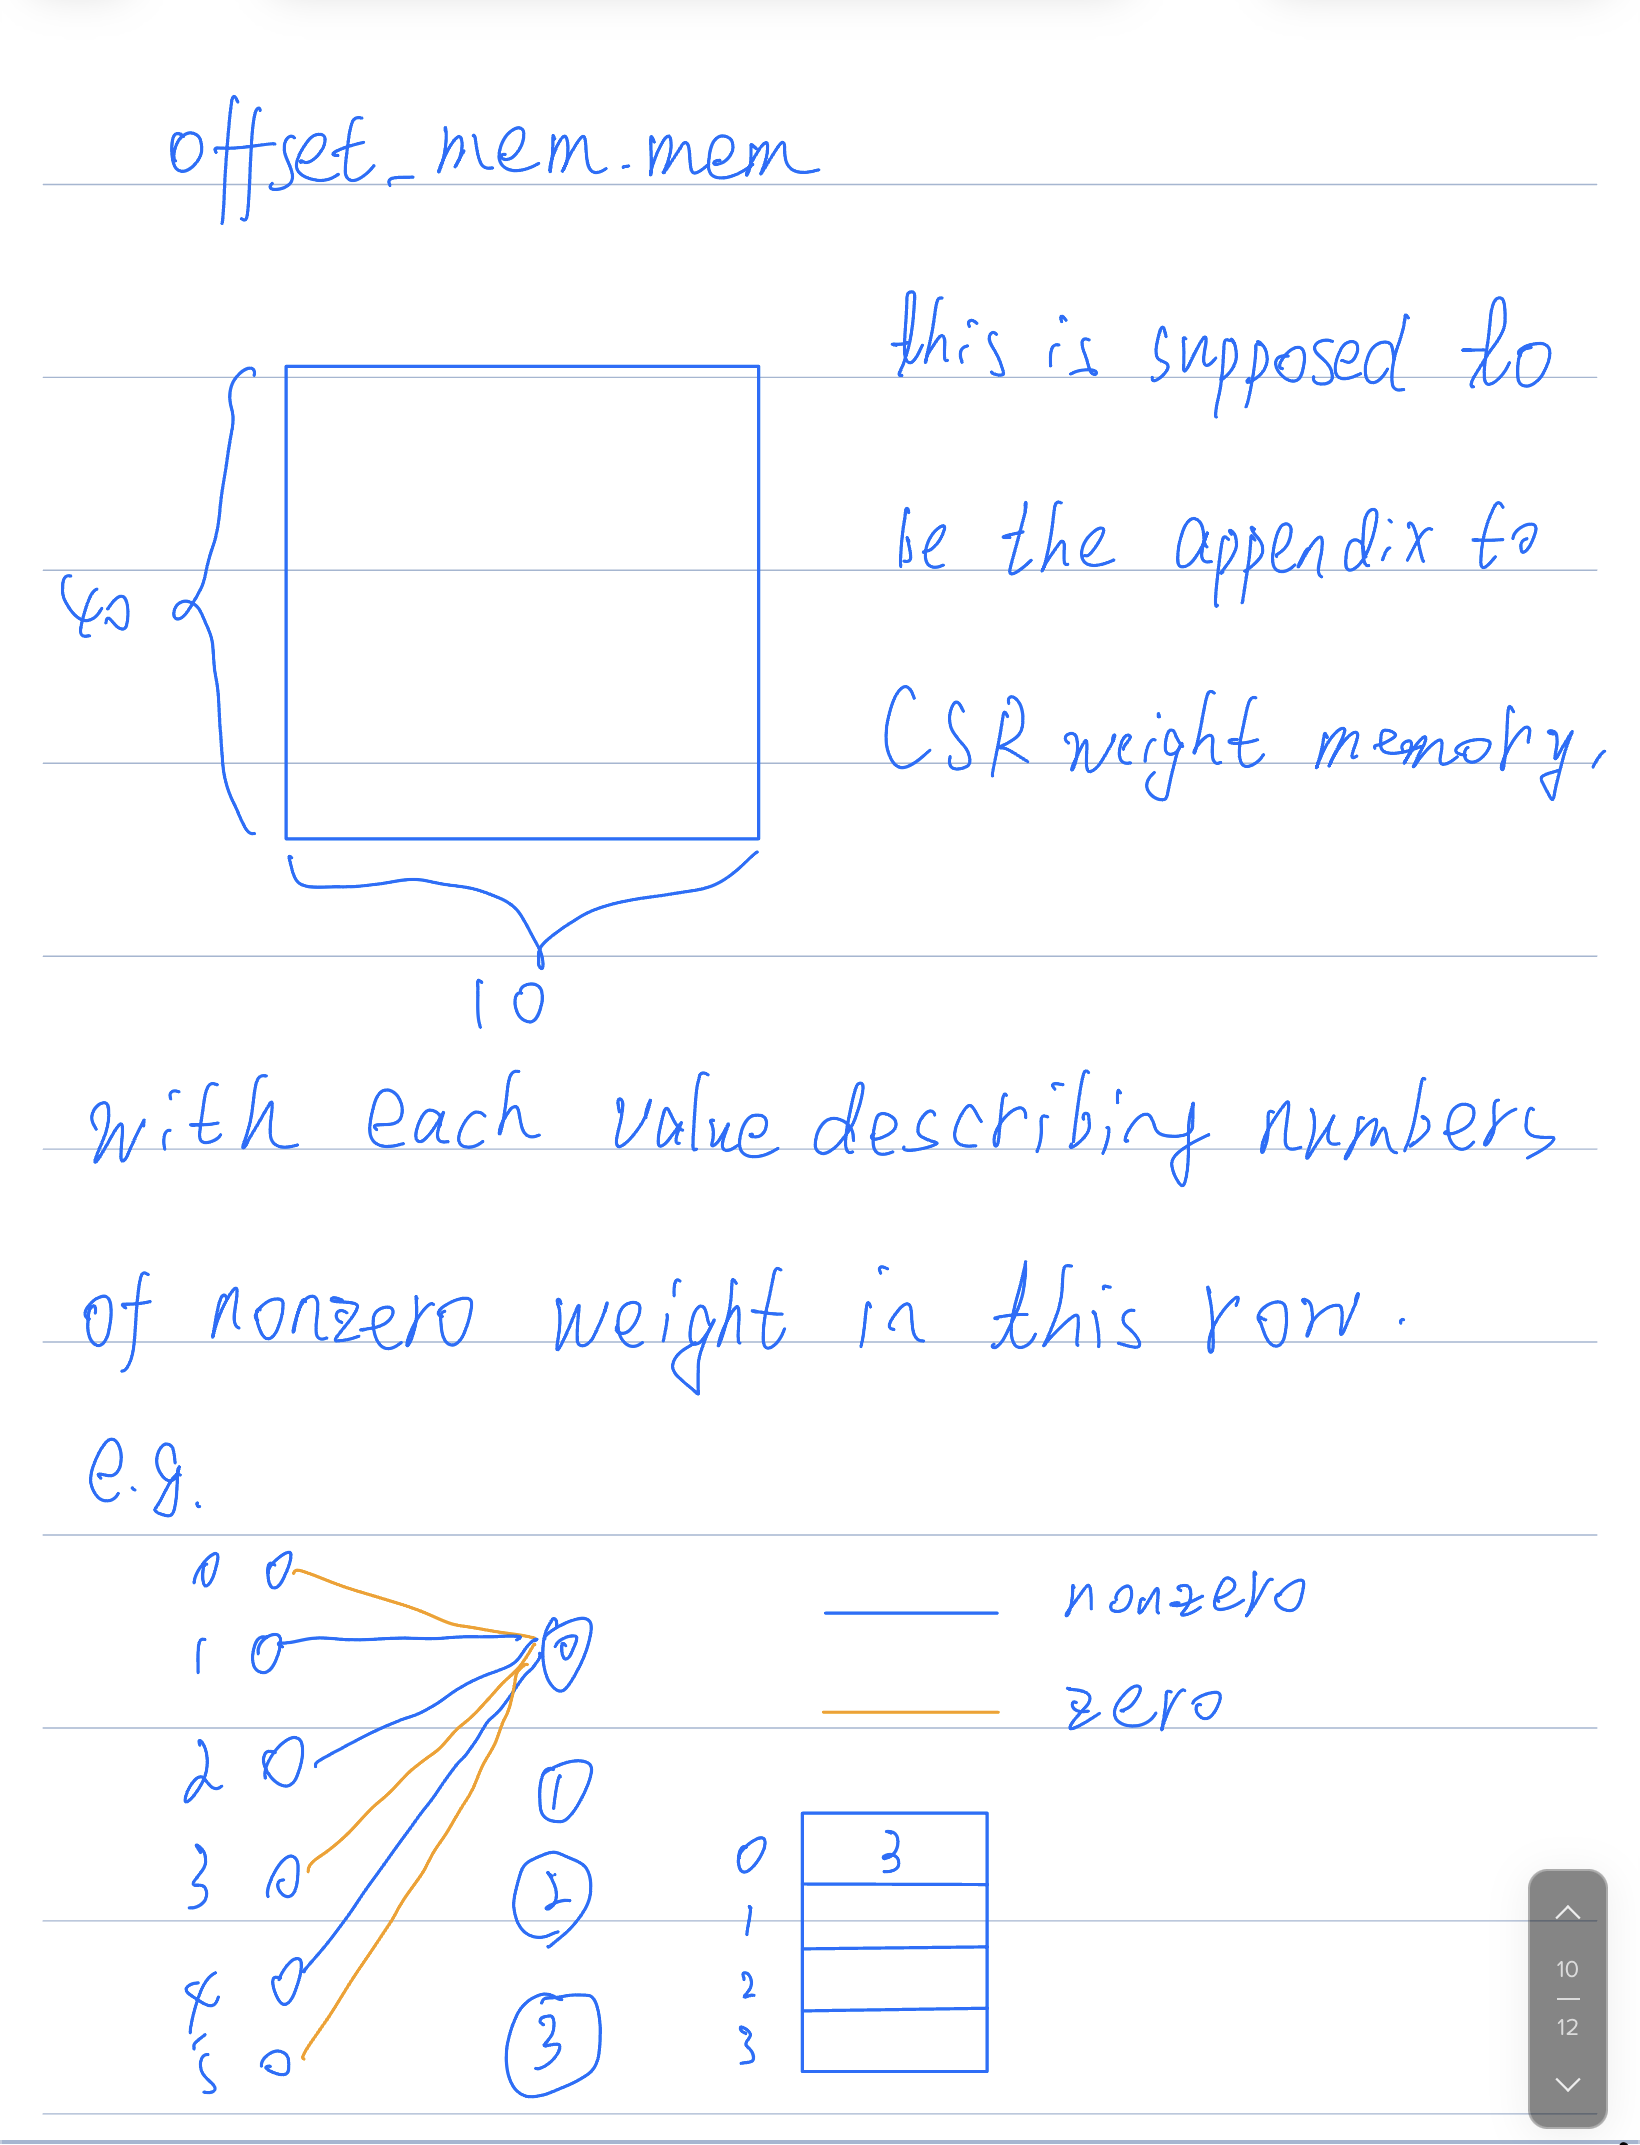 offset_mem.mem
this is supposed to
be the appendix to
40
CSR weight memory,
10
with each value describing numbers
of nonzero weight in this row.
e.g.
0
nonzero
1 0
zero
2
1
3 0 3
2
1
4 2
3 3
5
10
12